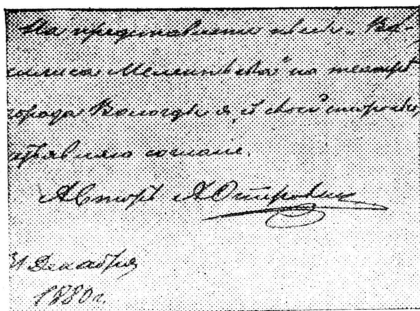 На представленіе пьесы „Ва-
силиса Мелентьева“ на театрѣ
города Вологды я, съ своей стороны,
изъявляю согласіе.
Авторъ А Островскій
31 Декабря
1880 г.